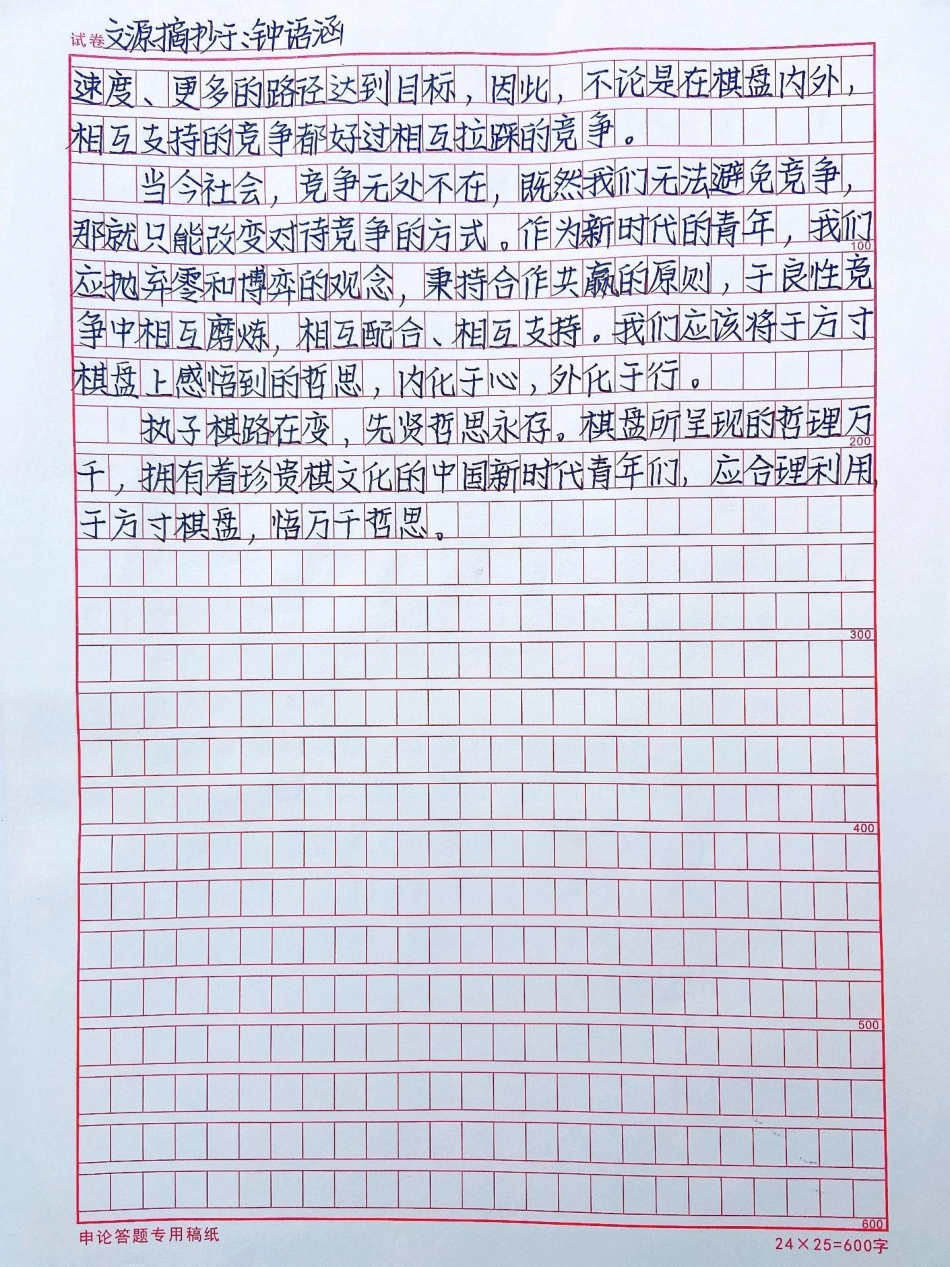 试卷 文源摘抄于:钟语涵
速度、更多的路径达到目标，因此，不论是在棋盘内外，
相互支持的竞争都好过相互拉踩的竞争。
当今社会，竞争无处不在，既然我们无法避免竞争，
那就只能改变对待竞争的方式。作为新时代的青年，我们
100
应抛弃零和博弈的观念，秉持合作共赢的原则，于良性竞
争中相互磨炼，相互配合、相互支持。我们应该将于方寸
棋盘上感悟到的哲思，内化于心，外化于行。
执子棋路在变，先贤哲思永存。棋盘所呈现的哲理万
200
千，拥有着珍贵棋文化的中国新时代青年们，应合理利用，
于方寸棋盘，悟万千哲思。
300
400
500
600
申论答题专用稿纸
24×25=600字